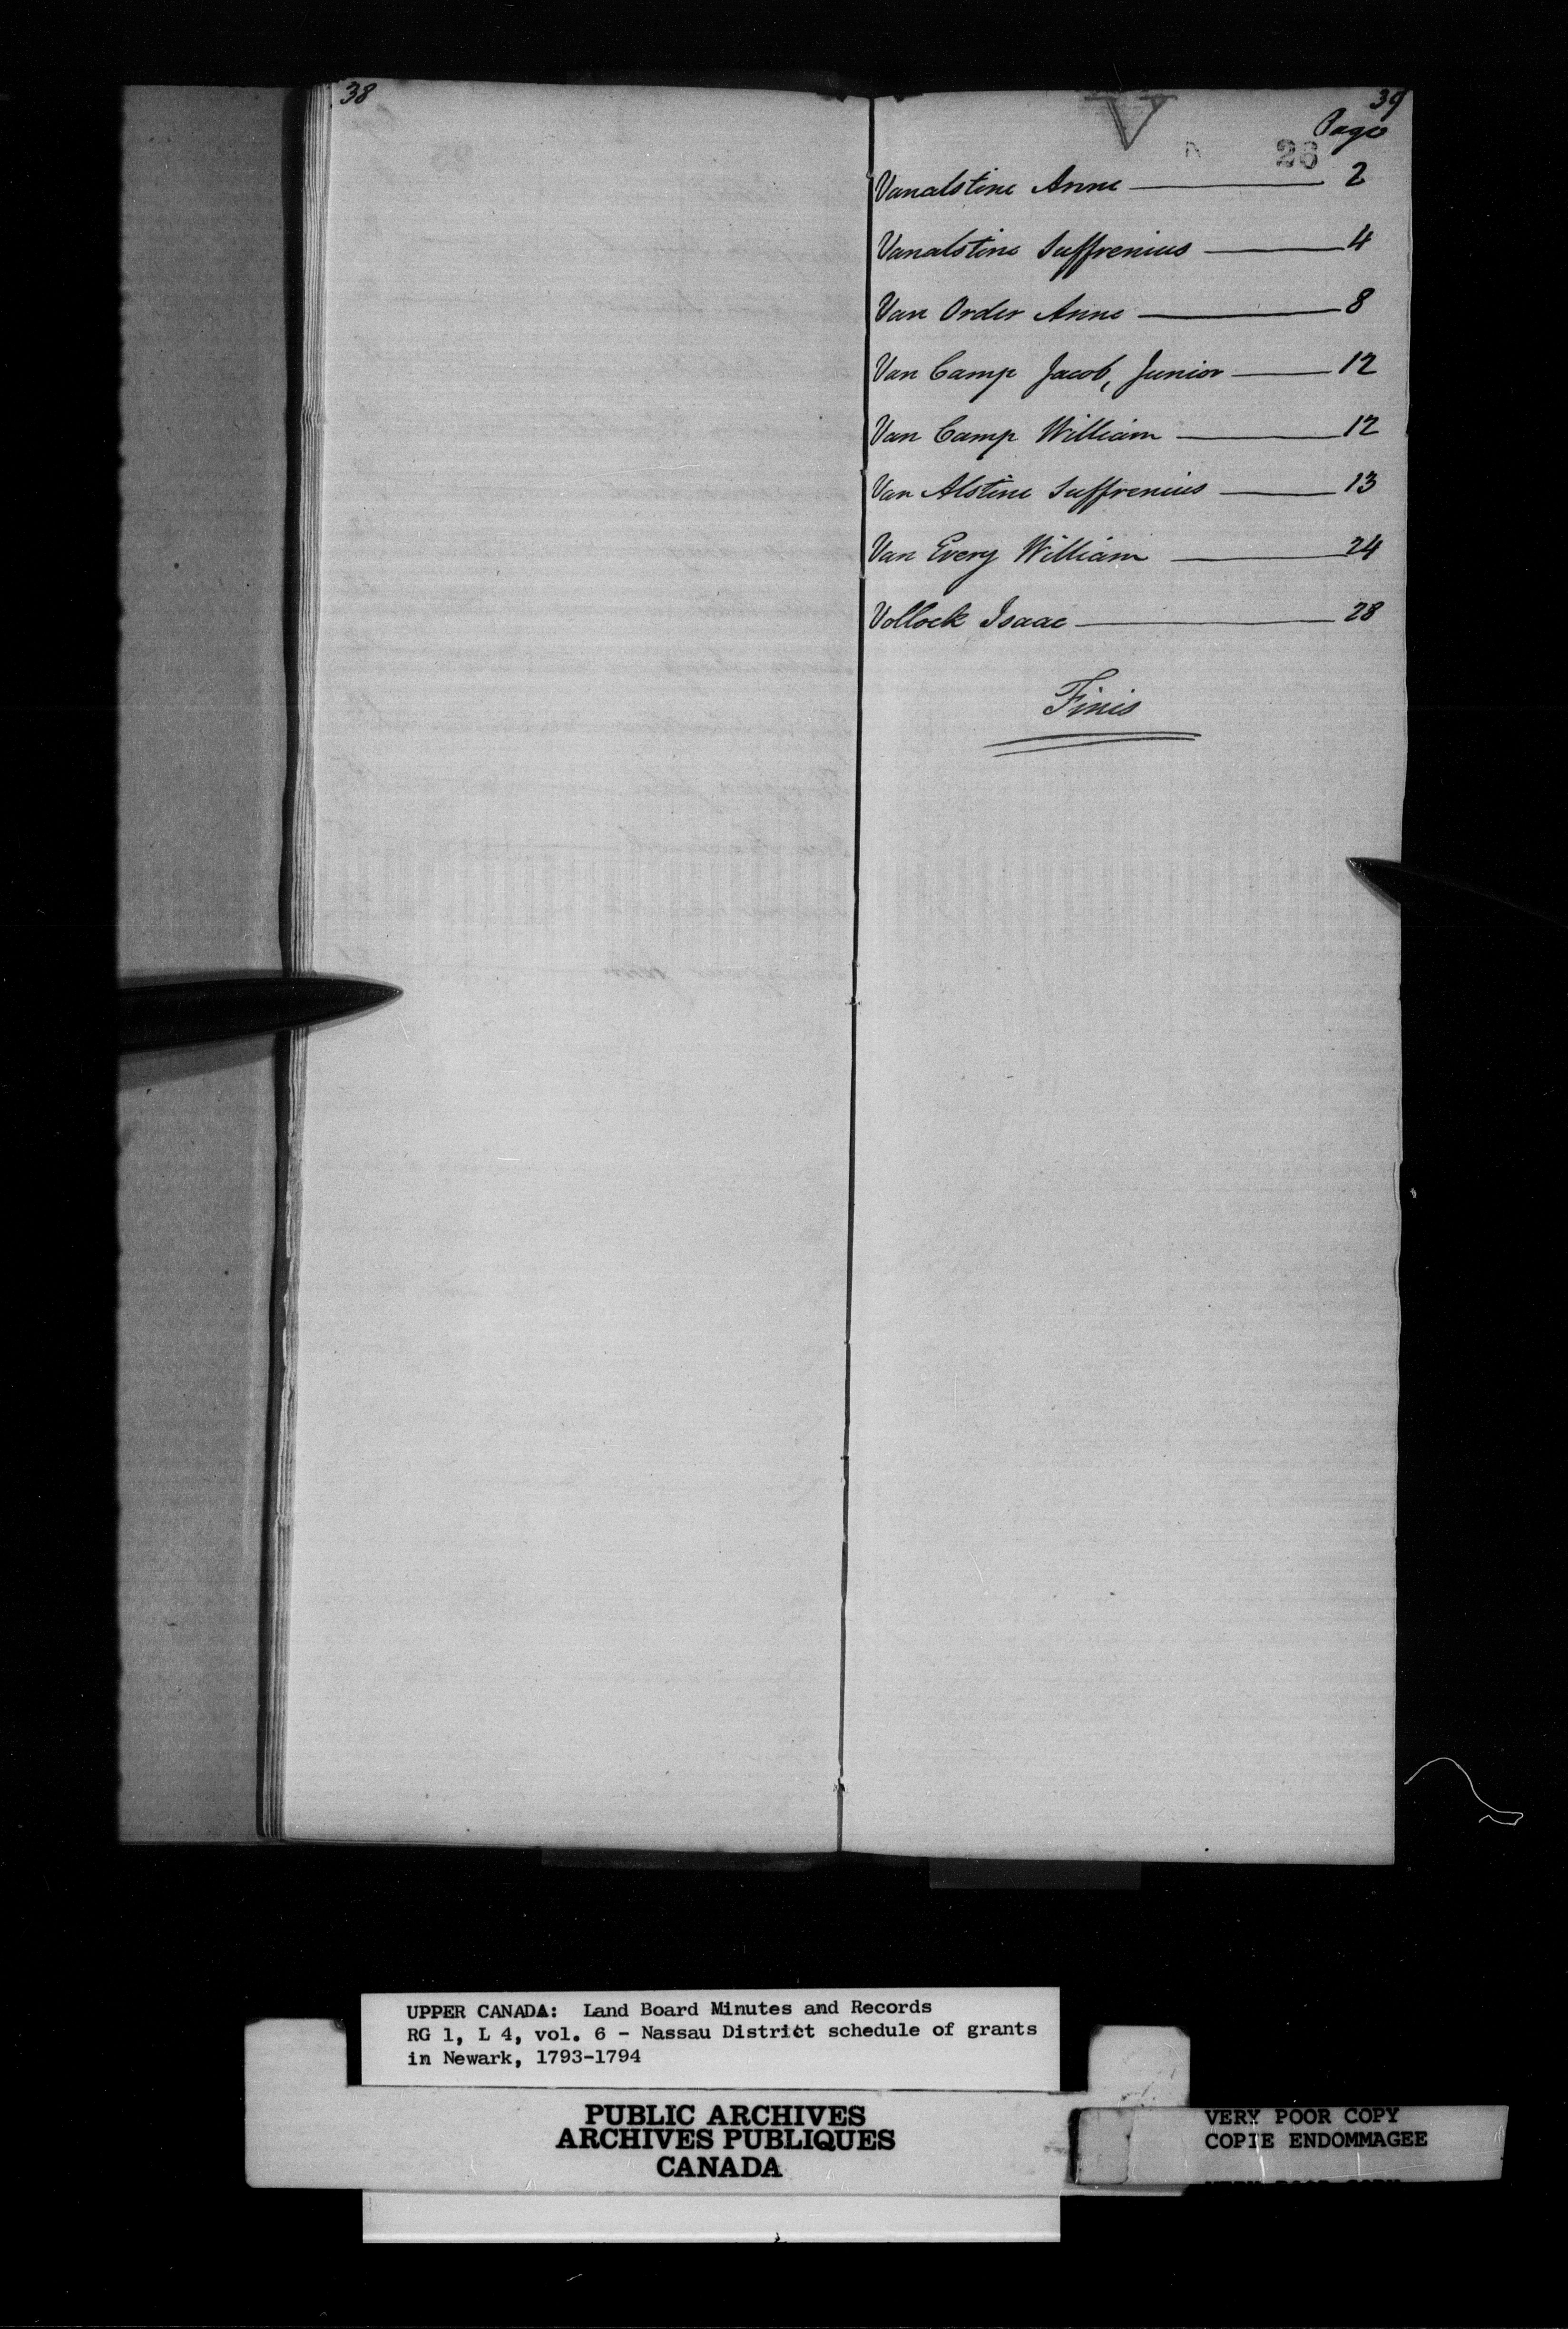 38
39
V
Page
26
Vanalstine Anne 2
Vanalstine Suffrenius 4
Van Order Anne 8
Van Camp Jacob, Junior 12
Van Camp William 12
Van Alstine Suffrenius 13
Van Every William 24
Vollock Isaac 28
Finis
UPPER CANADA: Land Board Minutes and Records
RG 1, L 4, vol. 6 - Nassau District schedule of grants
in Newark, 1793-1794
PUBLIC ARCHIVES
ARCHIVES PUBLIQUES
CANADA
VERY POOR COPY
COPIE ENDOMMAGEE